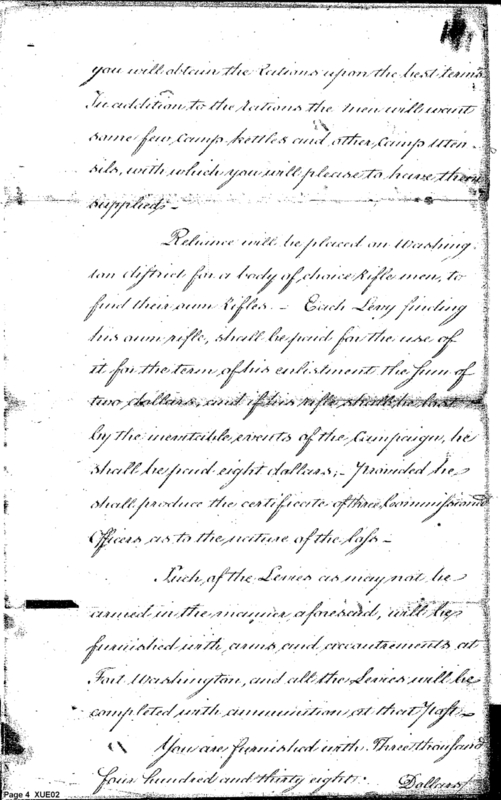 you will obtain the Rations upon the best terms
In addition to the rations the men will want
some few camp kettles and other camp uten-
sils, with which you will please to have them
supplied—
Reliance will be placed on Washing-
ton district for a body of choice Rifle men, to
find their own Rifles.— Each Levy finding
his own rifle, shall be paid for the use of
it for the term of his enlistment the sum of
two dollars; and if his rifle shall be lost
by the inevitable events of the Campaign, he
shall be paid eight dollars;— Provided he
shall produce the certificate of three Commissioned
Officers as to the nature of the loss—
Such of the Levies as may not be
armed in the manner aforesaid, will be
furnished with arms and accoutrements at
Fort Washington, and all the Levies will be
completed with ammunition at that Post—
You are furnished with Three thousand
four hundred and thirty eight Dollars
Page 4 XUE02